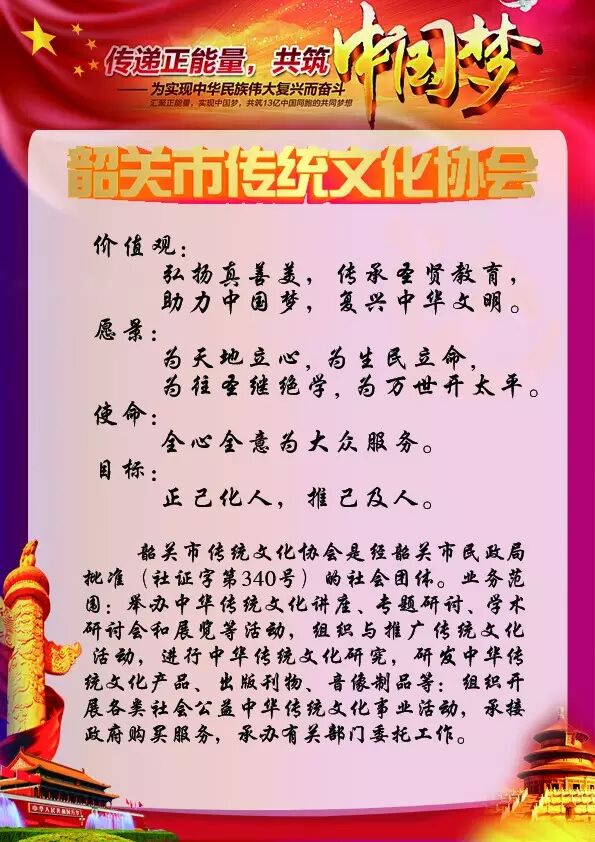 传递正能量，共筑中国梦
——为实现中华民族伟大复兴而奋斗
汇聚正能量，实现中国梦，共筑13亿中国同胞的共同梦想
韶关市传统文化协会
价值观：
弘扬真善美，传承圣贤教育，
助力中国梦，复兴中华文明。
愿景：
为天地立心，为生民立命，
为往圣继绝学，为万世开太平。
使命：
全心全意为大众服务。
目标：
正己化人，推己及人。
韶关市传统文化协会是经韶关市民政局
批准（社证字第340号）的社会团体。业务范
围：举办中华传统文化讲座、专题研讨、学术
研讨会和展览等活动，组织与推广传统文化
活动，进行中华传统文化研究，研发中华传
统文化产品、出版刊物、音像制品等；组织开
展各类社会公益中华传统文化事业活动，承接
政府购买服务，承办有关部门委托工作。